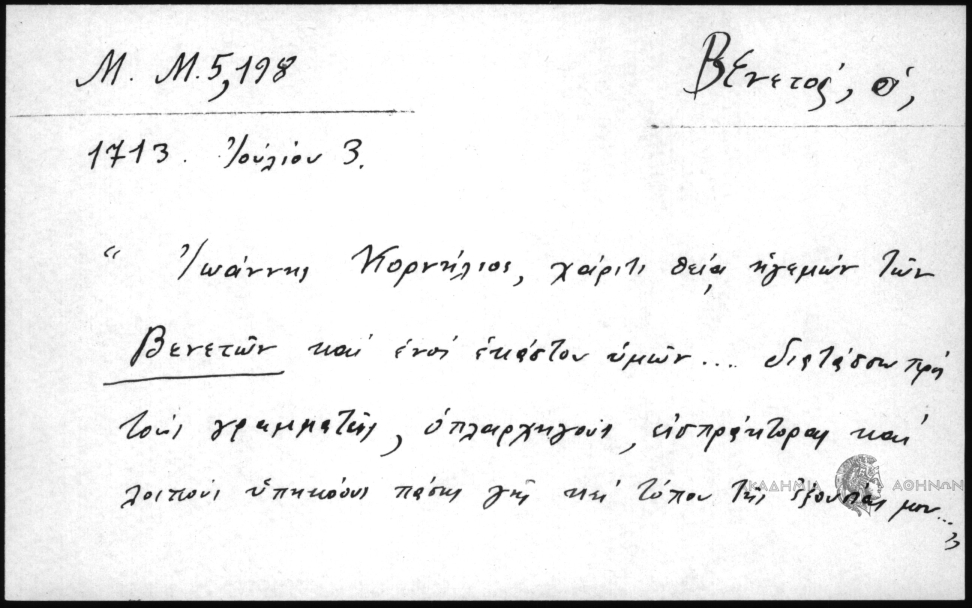 Μ. Μ. 5, 198
Βενετός, ὁ,
1713. Ἰούλιου 3.
“ Ἰωάννης Κορνήλιος, χάριτι θείᾳ ἡγεμὼν τῶν
Βενετῶν καὶ ἑνὸς ἑκάστου ὑμῶν ... διατάσσω πρὸς
τοὺς γραμματεῖς, ὁπλαρχηγούς, εἰσπράκτορας καὶ
λοιποὺς ὑπηκόους πάσης γῆς καὶ τόπου τῆς ἐξουσίας μου...”
ΑΚΑΔΗΜΙΑ ΑΘΗΝΩΝ